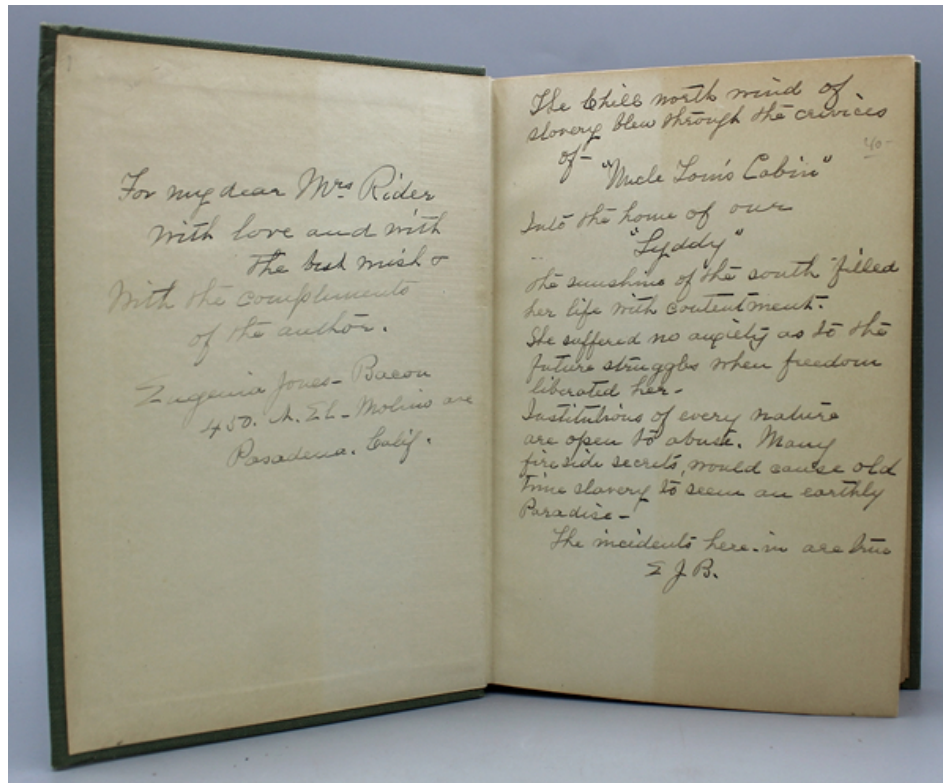 For my dear Mrs Rider
With love and with
the best wish &
With the compliments
of the author.
Eugenia Jones-Bacon
450. N. El-Molino ave
Pasadena. Calif.
The Chill north wind of
slavery blew through the crivices
of-
40-
"Uncle Tom's Cabin"
Into the home of our
"Lyddy"
the sunshine of the south filled
her life with contentment.
She suffered no anxiety as to the
future struggles when freedom
liberated her-
Institutions of every nature
are open to abuse. Many
fireside secrets, would cause old
time slavery to seem an earthly
Paradise-
The incidents here-in are true
E J B.